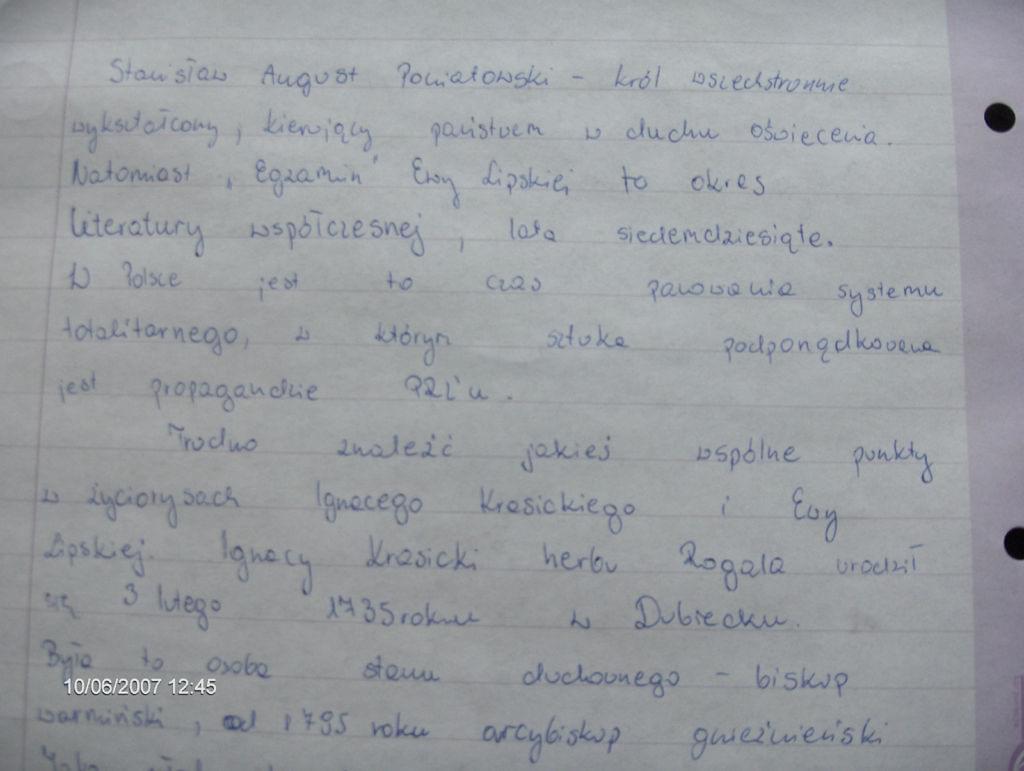 Stanisław August Poniatowski - król wszechstronnie
wykształcony, kierujący państwem w duchu oświecenia.
Natomiast „Egzamin" Ewy Lipskiej to okres
literatury współczesnej, lata siedemdziesiąte.
W Polsce jest to czas panowania systemu
totalitarnego, w którym sztuka podporządkowana
jest propagandzie PRL'u.
Trudno znaleźć jakieś wspólne punkty
w życiorysach Ignacego Krasickiego i Ewy
Lipskiej. Ignacy Krasicki herbu Rogala urodził
się 3 lutego 1735 roku w Dubiecku.
Była to osoba stanu duchownego - biskup
10/06/2007 12:45
warmiński, od 1795 roku arcybiskup gnieźnieński